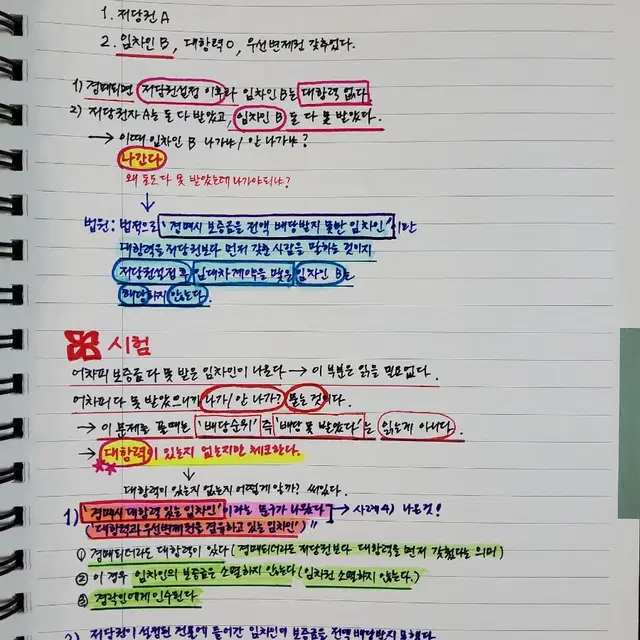 1. 저당권 A
2. 임차인 B, 대항력 O, 우선변제권 갖추었다.
1) 경매되면 저당권설정 이후라 임차인 B는 대항력 없다.
2) 저당권자 A는 돈 다 받았고, 임차인 B 돈 다 못 받았다.
→ 이때 임차인 B 나가냐/안 나가냐?
나간다
왜 돈도 다 못 받았는데 나가야되냐?
↓
법원: 법적으로 '경매시 보증금을 전액 배당받지 못한 임차인'이란
대항력을 저당권보다 먼저 갖춘 사람을 말하는 것이지
저당권설정 후 임대차계약을 맺은 임차인 B는
해당하지 않는다.
시험
어차피 보증금 다 못 받은 임차인이 나온다 → 이 부분은 읽을 필요없다.
어차피 다 못 받았으니까 나가/안 나가? 묻는 것이다.
→ 이 문제를 풀때는 '배당순위' 즉 '배당 못 받았다'는 읽는게 아니다.
→ 대항력이 있는지 없는지만 체크한다.
↓
대항력이 있는지 없는지 어떻게 알까? 써있다.
1) '경매시 대항력 있는 임차인'이라는 문구가 나온다 → 사례4) 나온것!
('대항력과 우선변제권을 겸유하고 있는 임차인')"
① 경매되더라도 대항력이 있다 (경매되더라도 저당권보다 대항력을 먼저 갖췄다는 의미)
② 이 경우 임차인의 보증금은 소멸하지 않는다 (임차권 소멸하지 않는다.)
③ 경락인에게 인수된다.
2) 저당권이 설정된 건물에 들어간 임차인이 보증금을 전액 배당받지 못했다.